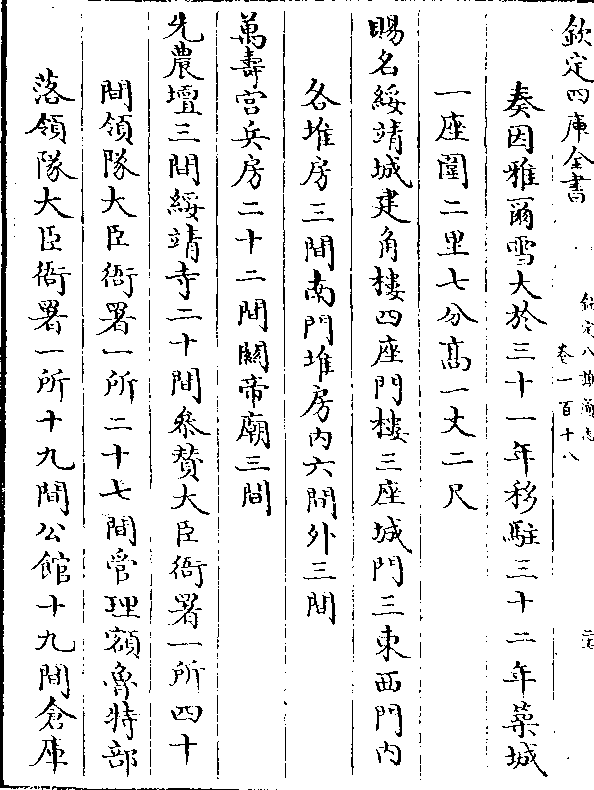 欽定四庫全書
欽定八旗通志
卷一百十八
奏因雅爾雪大於三十一年移駐三十二年築城
一座圍二里七分髙一丈二尺
賜名綏靖城建角樓四座門樓三座城門三東西門内
各堆房三間南門堆房内六間外三間
萬壽宫兵房二十二間關帝廟三間
先農壇三間綏靖寺二十間叅贊大臣衙署一所四十
間領隊大臣衙署一所二十七間管理額魯特部
落領隊大臣衙署一所十九間公館十九間倉庫